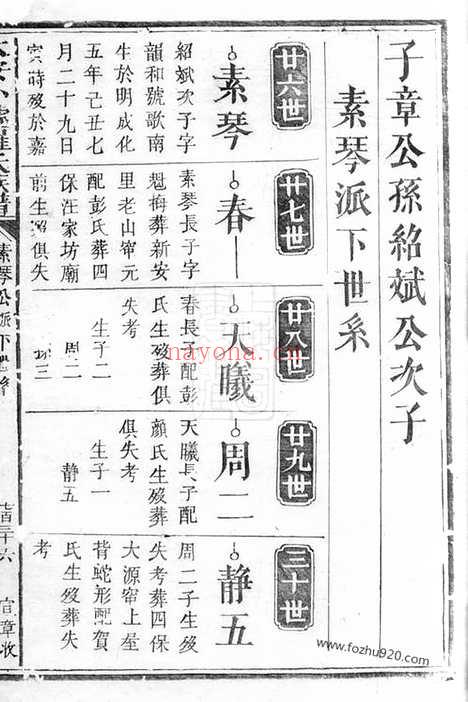 子章公孫紹斌公次子
素琴派下世系
廿六世
素琴
紹斌次子字
韻和號歌南
生於明成化
五年己丑七
月二十九日
寅時歿於嘉
廿七世
春一
素琴長子字
魁梅葬新安
里老山帘元
配彭氏葬四
保汪家坊廟
前生歿俱失
廿八世
天曦
春長子配彭
氏生歿葬俱
失考
生子二
周二
廿九世
周二
天曦長子配
顏氏生歿葬
俱失考
生子一
靜五
三十世
靜五
周二子生歿
失考葬四保
大源帘上屋
背蛇形配賀
氏生歿葬失
考
素琴公派下世系
nayona.cn
www.fozhu920.com